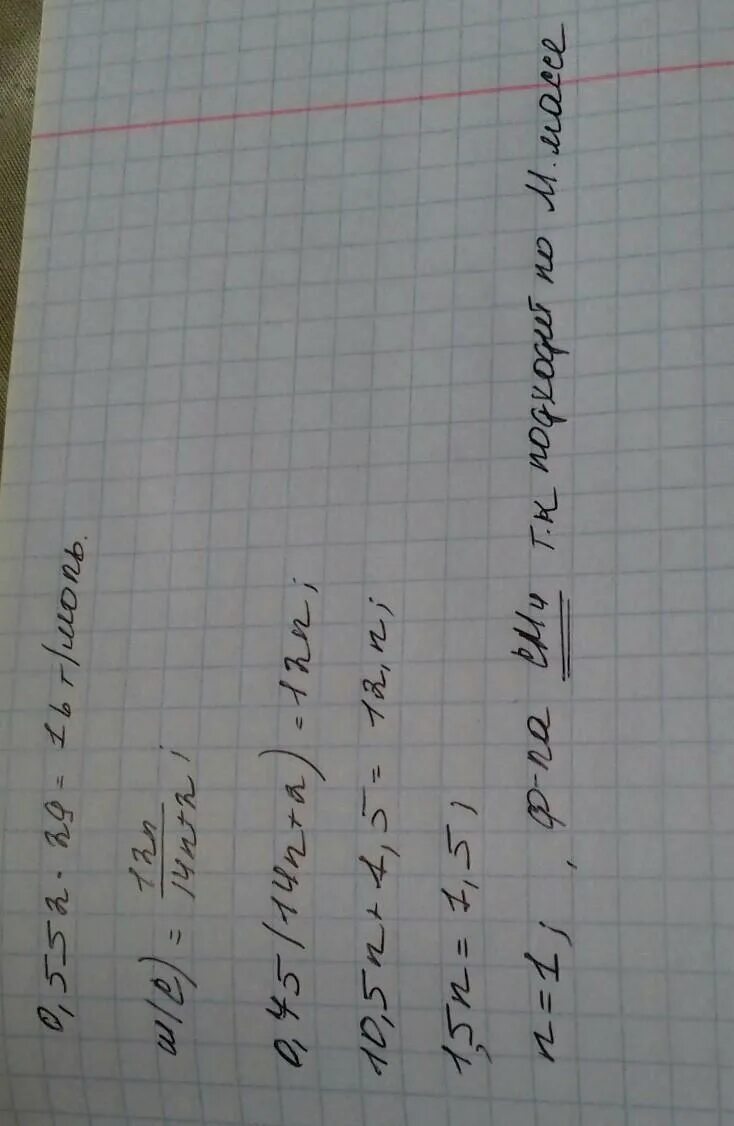 0,552 · 29 = 16 г/моль.
w(C) = 12n/14n+2;
0,75(14n+2) = 12n;
10,5n + 1,5 = 12,n;
1,5n = 1,5;
n=1; , ф-ла CH4 т.к подходит по М. массе